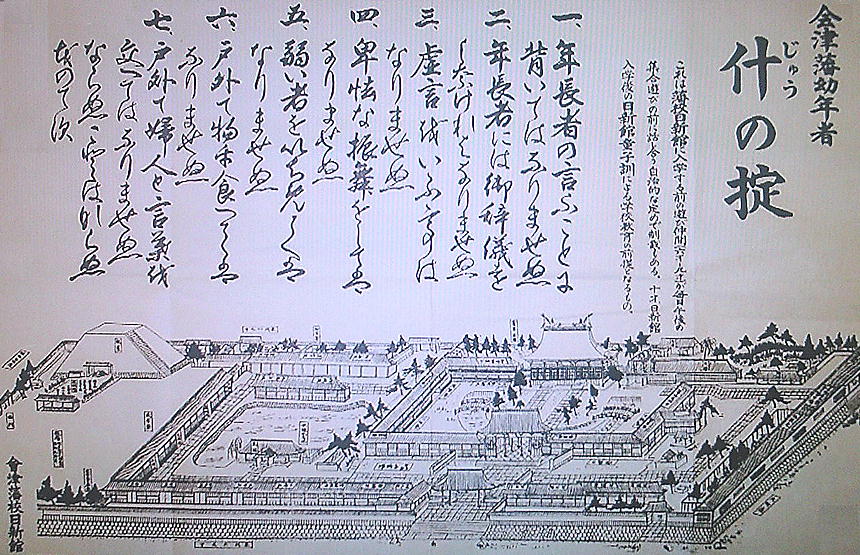 会津藩幼年者
じゅう
什の掟
これは藩校日新館に入学する前の遊び仲間(六才〜九才)が毎日午後の
集合遊びの前に話し合う自治的な定めで制裁もある。十才日新館
入学後の日新館童子訓による学校教育の前提となるもの。
一、年長者の言ふことに
背いてはなりませぬ
二、年長者には御辞儀を
しなければなりませぬ
三、虚言をいふ事は
なりませぬ
四、卑怯な振舞をしては
なりませぬ
五、弱い者をいぢめては
なりませぬ
六、戸外で物を食べては
なりませぬ
七、戸外で婦人と言葉を
交へてはなりませぬ
ならぬことはならぬ
ものです
會津藩校日新館